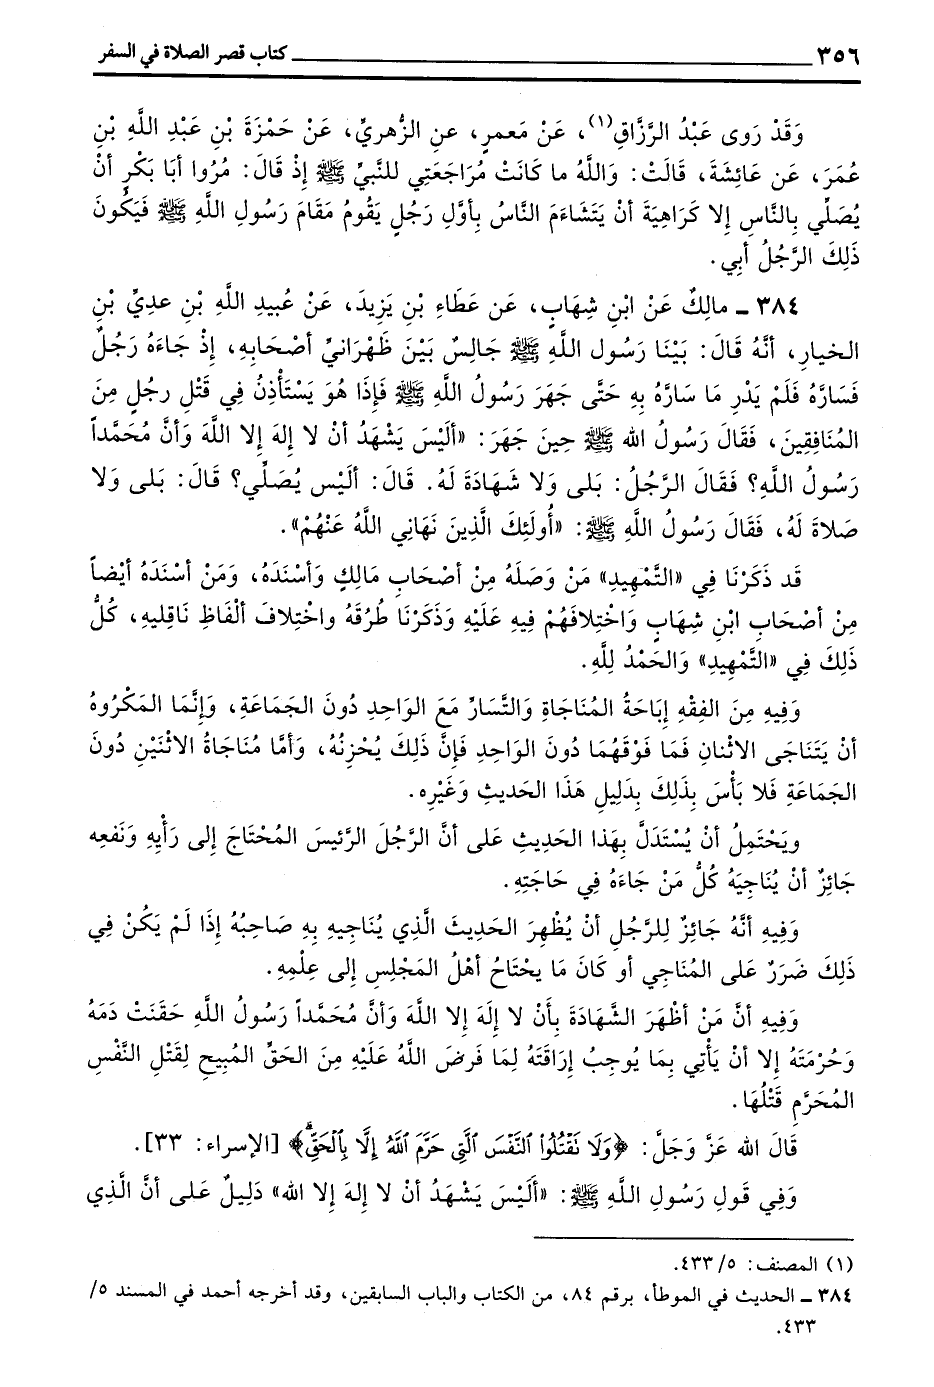 ٣٥٦ كتاب قصر الصلاة في السفر
وَقَدْ رَوى عَبْدُ الرَّزَّاقِ(١)، عَنْ مَعمرٍ، عنِ الزُّهريِّ، عَنْ حَمْزَةَ بْنِ عَبْدِ اللَّهِ بْنِ
عُمَرَ، عَن عَائِشَةَ، قَالَتْ: وَاللَّهُ ما كَانَتْ مُرَاجَعَتِي للنَّبِيِّ ﷺ إذْ قَالَ: مُرُوا أبَا بَكْرٍ أنْ
يُصَلِّي بِالنَّاسِ إلا كَرَاهِيَةَ أنْ يَتَشَاءَمَ النَّاسُ بِأوَّلِ رَجُلٍ يَقُومُ مَقَامَ رَسُولِ اللَّهِ ﷺ فَيَكُونَ
ذَلِكَ الرَّجُلُ أبِي.
٣٨٤ ـ مالِكٌ عَنْ ابْنِ شِهَابٍ، عَن عَطَاءِ بْنِ يَزِيدَ، عَنْ عُبيدِ اللَّهِ بْنِ عديِّ بْنِ
الخيارِ، أنَّهُ قَالَ: بَيْنَا رَسُول اللَّهِ ﷺ جَالِسٌ بَيْنَ ظَهْرَانيِّ أصْحَابِهِ، إذْ جَاءَهُ رَجُلٌ
فَسَارَّهُ فَلَمْ يَدْرِ مَا سَارَّهُ بِهِ حَتَّى جَهَرَ رَسُولُ اللَّهِ ﷺ فَإذَا هُوَ يَسْتَأْذِنُ فِي قَتْلِ رجُلٍ مِنَ
المُنَافِقِينَ، فَقَالَ رَسُولُ الله ﷺ حِينَ جَهَرَ: «ألَيْسَ يَشْهَدُ أنْ لا إلهَ إلا اللَّهَ وَأنَّ مُحَمَّداً
رَسُولُ اللَّهِ؟ فَقَالَ الرَّجُلُ: بَلى وَلا شَهَادَةَ لَهُ. قَالَ: ألَيْس يُصَلِّي؟ قَالَ: بَلى وَلا
صَلاةَ لَهُ، فَقَالَ رَسُولُ اللَّهِ ﷺ: «أُولَئِكَ الَّذِينَ نَهَانِي اللَّهُ عَنْهُمْ».
قَد ذَكَرْنَا فِي «التَّمْهِيدِ» مَنْ وَصَلَهُ مِنْ أصْحَابِ مَالِكٍ وَأسْنَدَهُ، وَمَنْ أسْنَدَهُ أيْضاً
مِنْ أصْحَابِ ابْنِ شِهَابٍ وَاخْتِلافَهُمْ فِيهِ عَلَيْهِ وَذَكَرْنَا طُرُقَهُ واخْتِلافَ ألْفَاظِ نَاقِلِيهِ، كُلُّ
ذَلِكَ فِي «التَّمْهِيدِ» وَالحَمْدُ لِلَّهِ.
وَفِيهِ مِنَ الفِقْهِ إبَاحَةُ المُنَاجَاةِ وَالتَّسَارِّ مَعَ الوَاحِدِ دُونَ الجَمَاعَةِ، وَإنَّمَا المَكْرُوهُ
أنْ يَتَنَاجَى الاثْنانِ فَمَا فَوْقَهُمَا دُونَ الوَاحِدِ فَإنَّ ذَلِكَ يُحْزِنُهُ، وَأمَّا مُنَاجَاةُ الاثْنَيْنِ دُونَ
الجَمَاعَةِ فَلا بَأْسَ بِذَلِكَ بِدَلِيلِ هَذَا الحَدِيثِ وَغَيْرِهِ.
ويَحْتَمِلُ أنْ يُسْتَدَلَّ بِهَذا الحَدِيثِ عَلى أنَّ الرَّجُلَ الرَّئيسَ المُحْتَاجَ إلى رَأْيِهِ وَنَفعِه
جَائِزٌ أنْ يُنَاجِيَهُ كُلُّ مَنْ جَاءَهُ فِي حَاجَتِهِ.
وَفِيهِ أنَّهُ جَائِزٌ لِلرَّجُلِ أنْ يُظْهِرَ الحَدِيثَ الَّذِي يُنَاجِيهِ بِهِ صَاحِبُهُ إذَا لَمْ يَكُنْ فِي
ذَلِكَ ضَرَرٌ عَلى المُنَاجِي أو كَانَ مَا يحْتَاجُ أهْلُ المَجْلِسِ إلى عِلْمِهِ.
وَفِيهِ أنَّ مَنْ أظْهَرَ الشَّهَادَةَ بِأَنْ لا إلَهَ إلا اللَّهَ وَأنَّ مُحَمَّداً رَسُولُ اللَّهِ حَقَنَتْ دَمَهُ
وَحُرْمَتَهُ إلا أنْ يَأْتِي بِمَا يُوجِبُ إرَاقَتَهُ لِمَا فَرضَ اللَّهُ عَلَيْهِ مِنَ الحَقِّ المُبِيحِ لِقَتْلِ النَّفْسِ
المُحَرَّمِ قَتْلُهَا.
قَالَ الله عَزَّ وَجَلَّ: ﴿وَلَا نَقْتُلُوا۟ ٱلنَّفْسَ ٱلَّتِى حَرَّمَ ٱللَّهُ إِلَّا بِٱلْحَقِّۗ﴾ [الإسراء: ٣٣].
وَفِي قَولِ رَسُولِ اللَّهِ ﷺ: «ألَيْسَ يَشْهَدُ أنْ لا إلهَ إلا الله» دَلِيلٌ عَلى أنَّ الَّذِي
(١) المصنف: ٥/ ٤٣٣.
٣٨٤ ـ الحديث في الموطأ، برقم ٨٤، من الكتاب والباب السابقين، وقد أخرجه أحمد في المسند ٥/
٤٣٣.